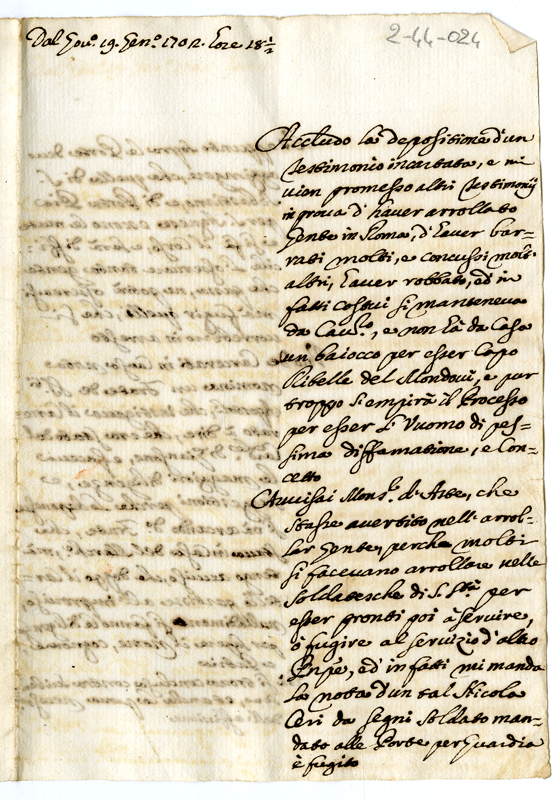 Dal Gov.º 19. Gen.º 1702. hore 18½
2-44-024
Accludo la depositione d'un
testimonio incartata, e mi
vien promesso altri testimonij
in prova d'haver arrollato
gente in Roma, d'haver bar=
rati molti, e concussi molt'
altri, haver robbato, ed in
fatti costui si manteneva
da Cav.re, e non hà da Casa
un baiocco per esser Capo
Ribelle del Mondovì, e pur
troppo s'empirà il Processo
per esser l'Uomo di pes=
sima diffamatione, e Con=
cetto
Avvisai Mons.r d'Aste, che
stasse avertito nell'arrol=
lar gente, perche molti
si facevano arrollare nelle
soldatesche di S. S.tà per
esser pronti poi à servire,
ò fugire al servizio d'altro
Pnpe, ed in fatti mi manda
la nota d'un tal Nicola
Ceri da Segni soldato man=
dato alle Porte per Guardia
è fugito